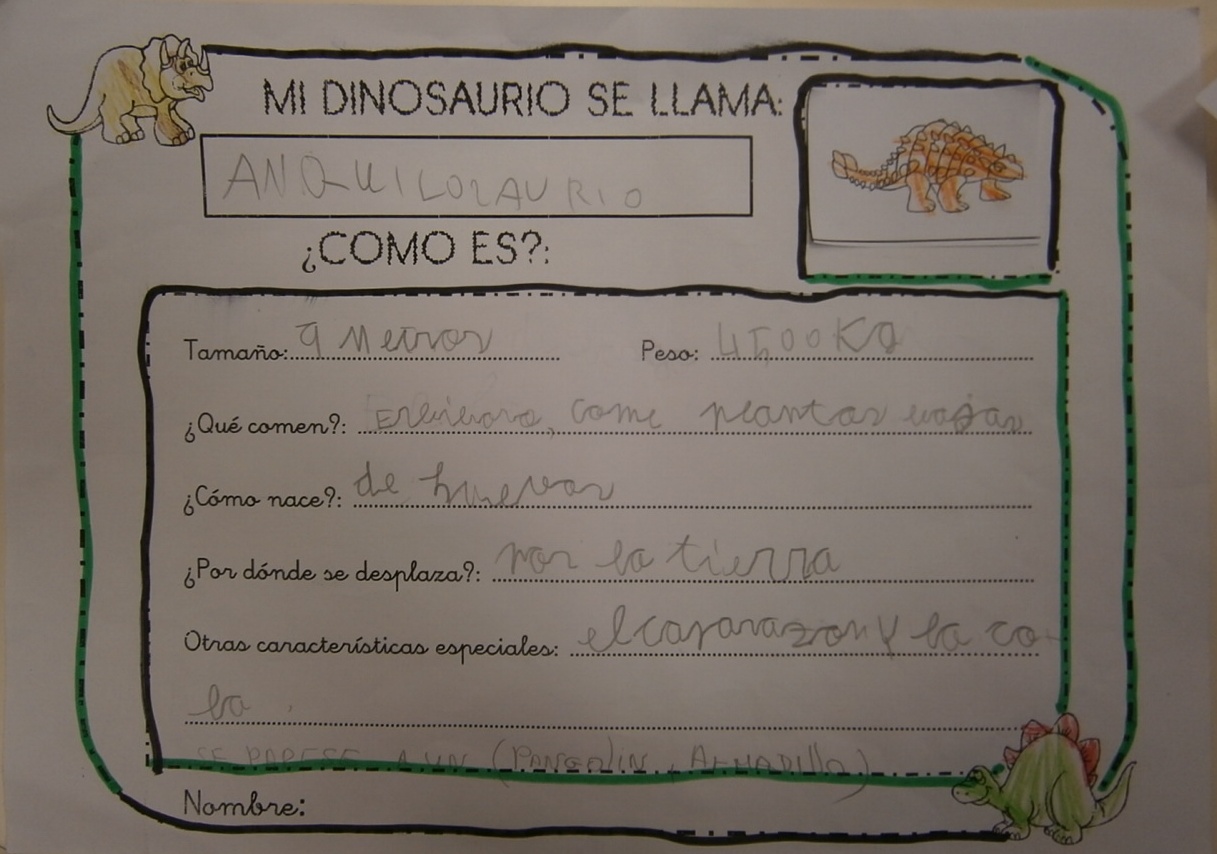 MI DINOSAURIO SE LLAMA:
ANQUILOSAURIO
¿COMO ES?:
Tamaño: 9 Metros Peso: 4500KG
¿Qué comen?: Erbivoro, come plantas vajas
¿Cómo nace?: de huevos
¿Por dónde se desplaza?: por la tierra
Otras características especiales: el caparazon y la co-
la.
SE PARESE A UN (PANGOLIN, ARMADILLO)
Nombre: